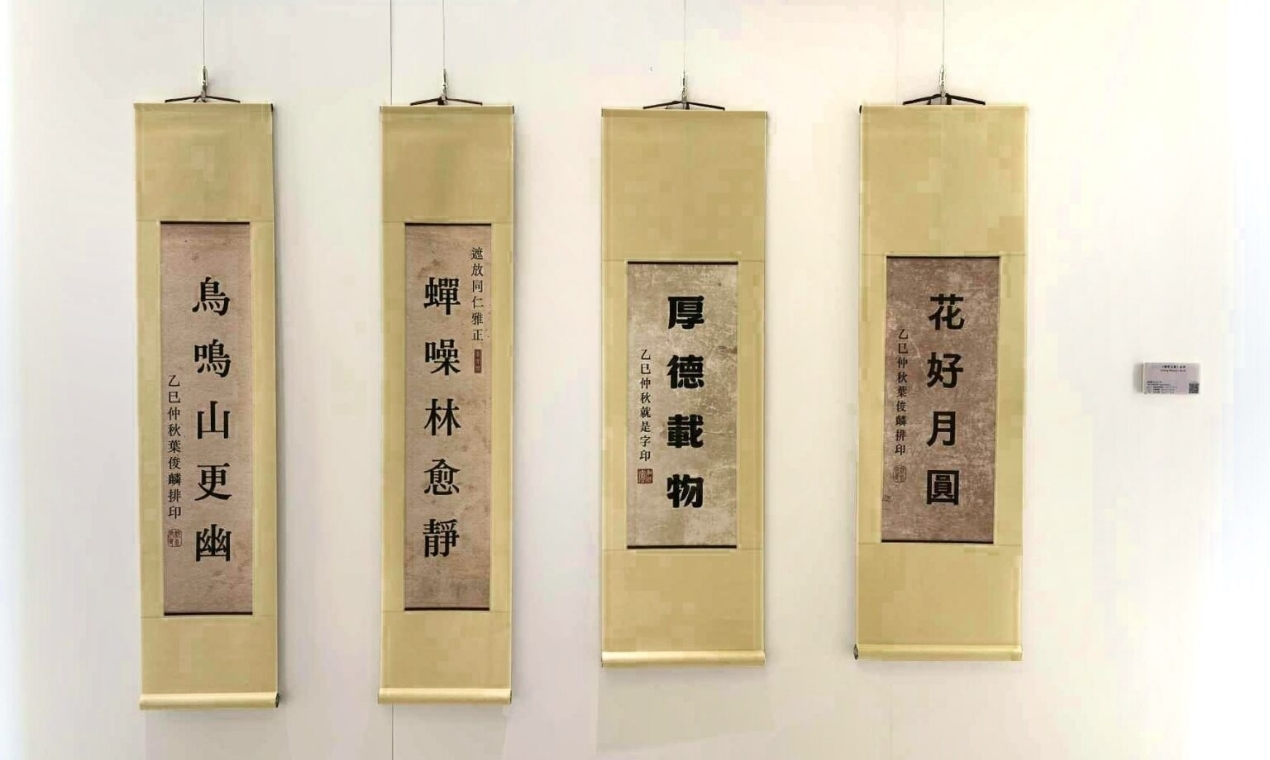 遮放同仁雅正
蟬噪林愈靜
鳥鳴山更幽
乙巳仲秋葉俊麟排印
花好月圓
乙巳仲秋葉俊麟排印
厚德載物
乙巳仲秋就是字印